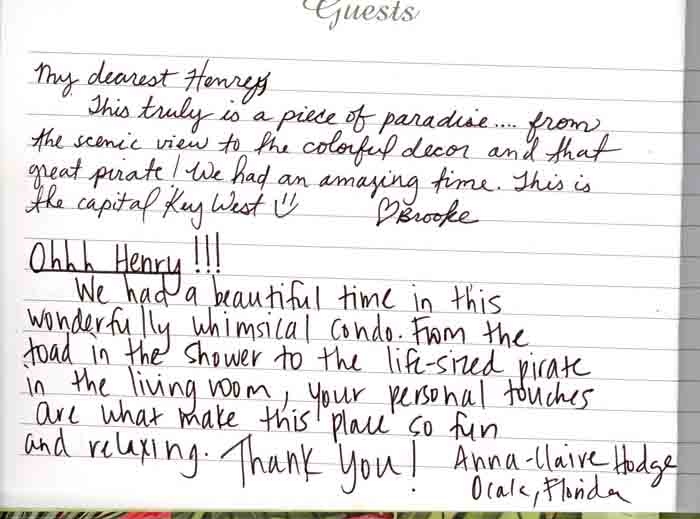 Guests
My dearest Henrys
This truly is a piece of paradise.... from
the scenic view to the colorful decor and that
great pirate! We had an amazing time. This is
the capital Key West
♡Brooke
Ohhh Henry!!!
We had a beautiful time in this
wonderfully whimsical condo. From the
toad in the shower to the life-sized pirate
in the living room, your personal touches
are what make this place so fun
and relaxing. Thank You! Anna-Claire Hodge
Ocala, Florida